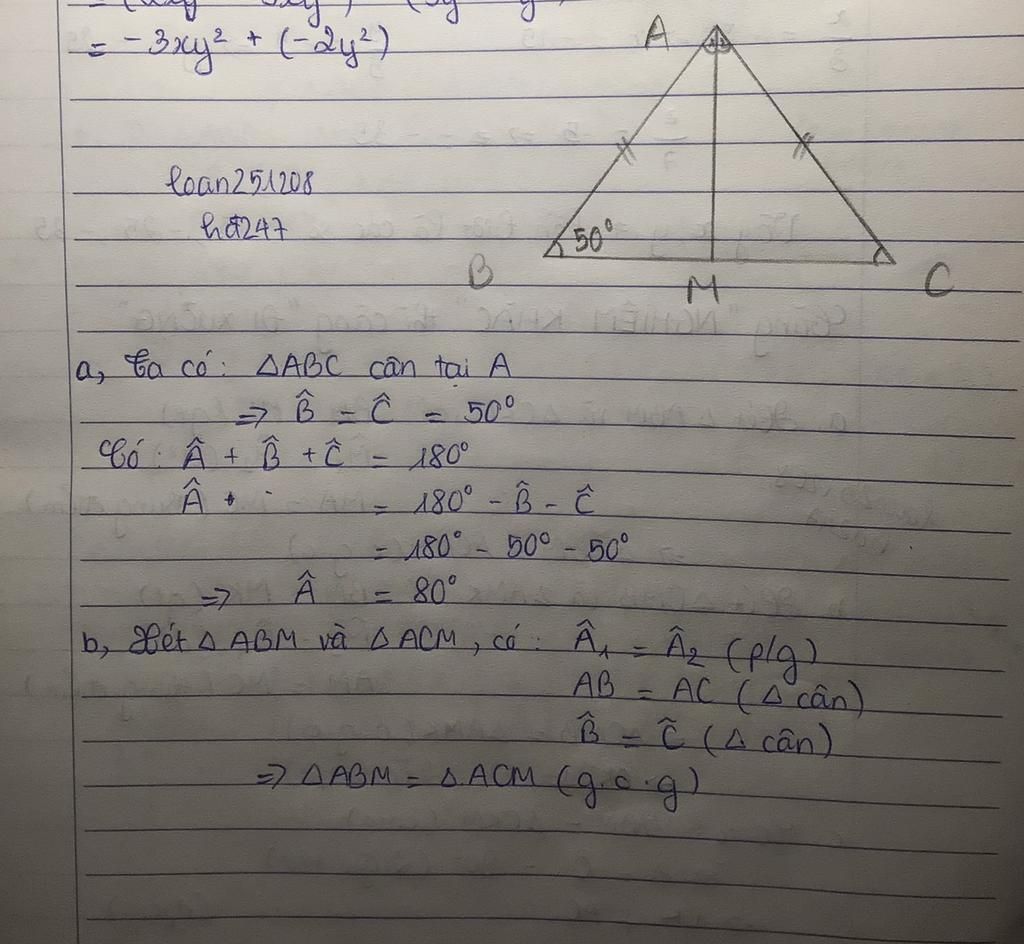 = -3xy² + (-2y²)
A
loan251208
hđ247
50°
B
M
C
a, Ta có: △ABC cân tại A
=> B̂ = Ĉ = 50°
Có: Â + B̂ + Ĉ = 180°
Â = 180° - B̂ - Ĉ
= 180° - 50° - 50°
=> Â = 80°
b, Xét △ABM và △ACM, có: Â₁ = Â₂ (p/g)
AB = AC (△ cân)
B̂ = Ĉ (△ cân)
=> △ABM = △ACM (g.c.g)